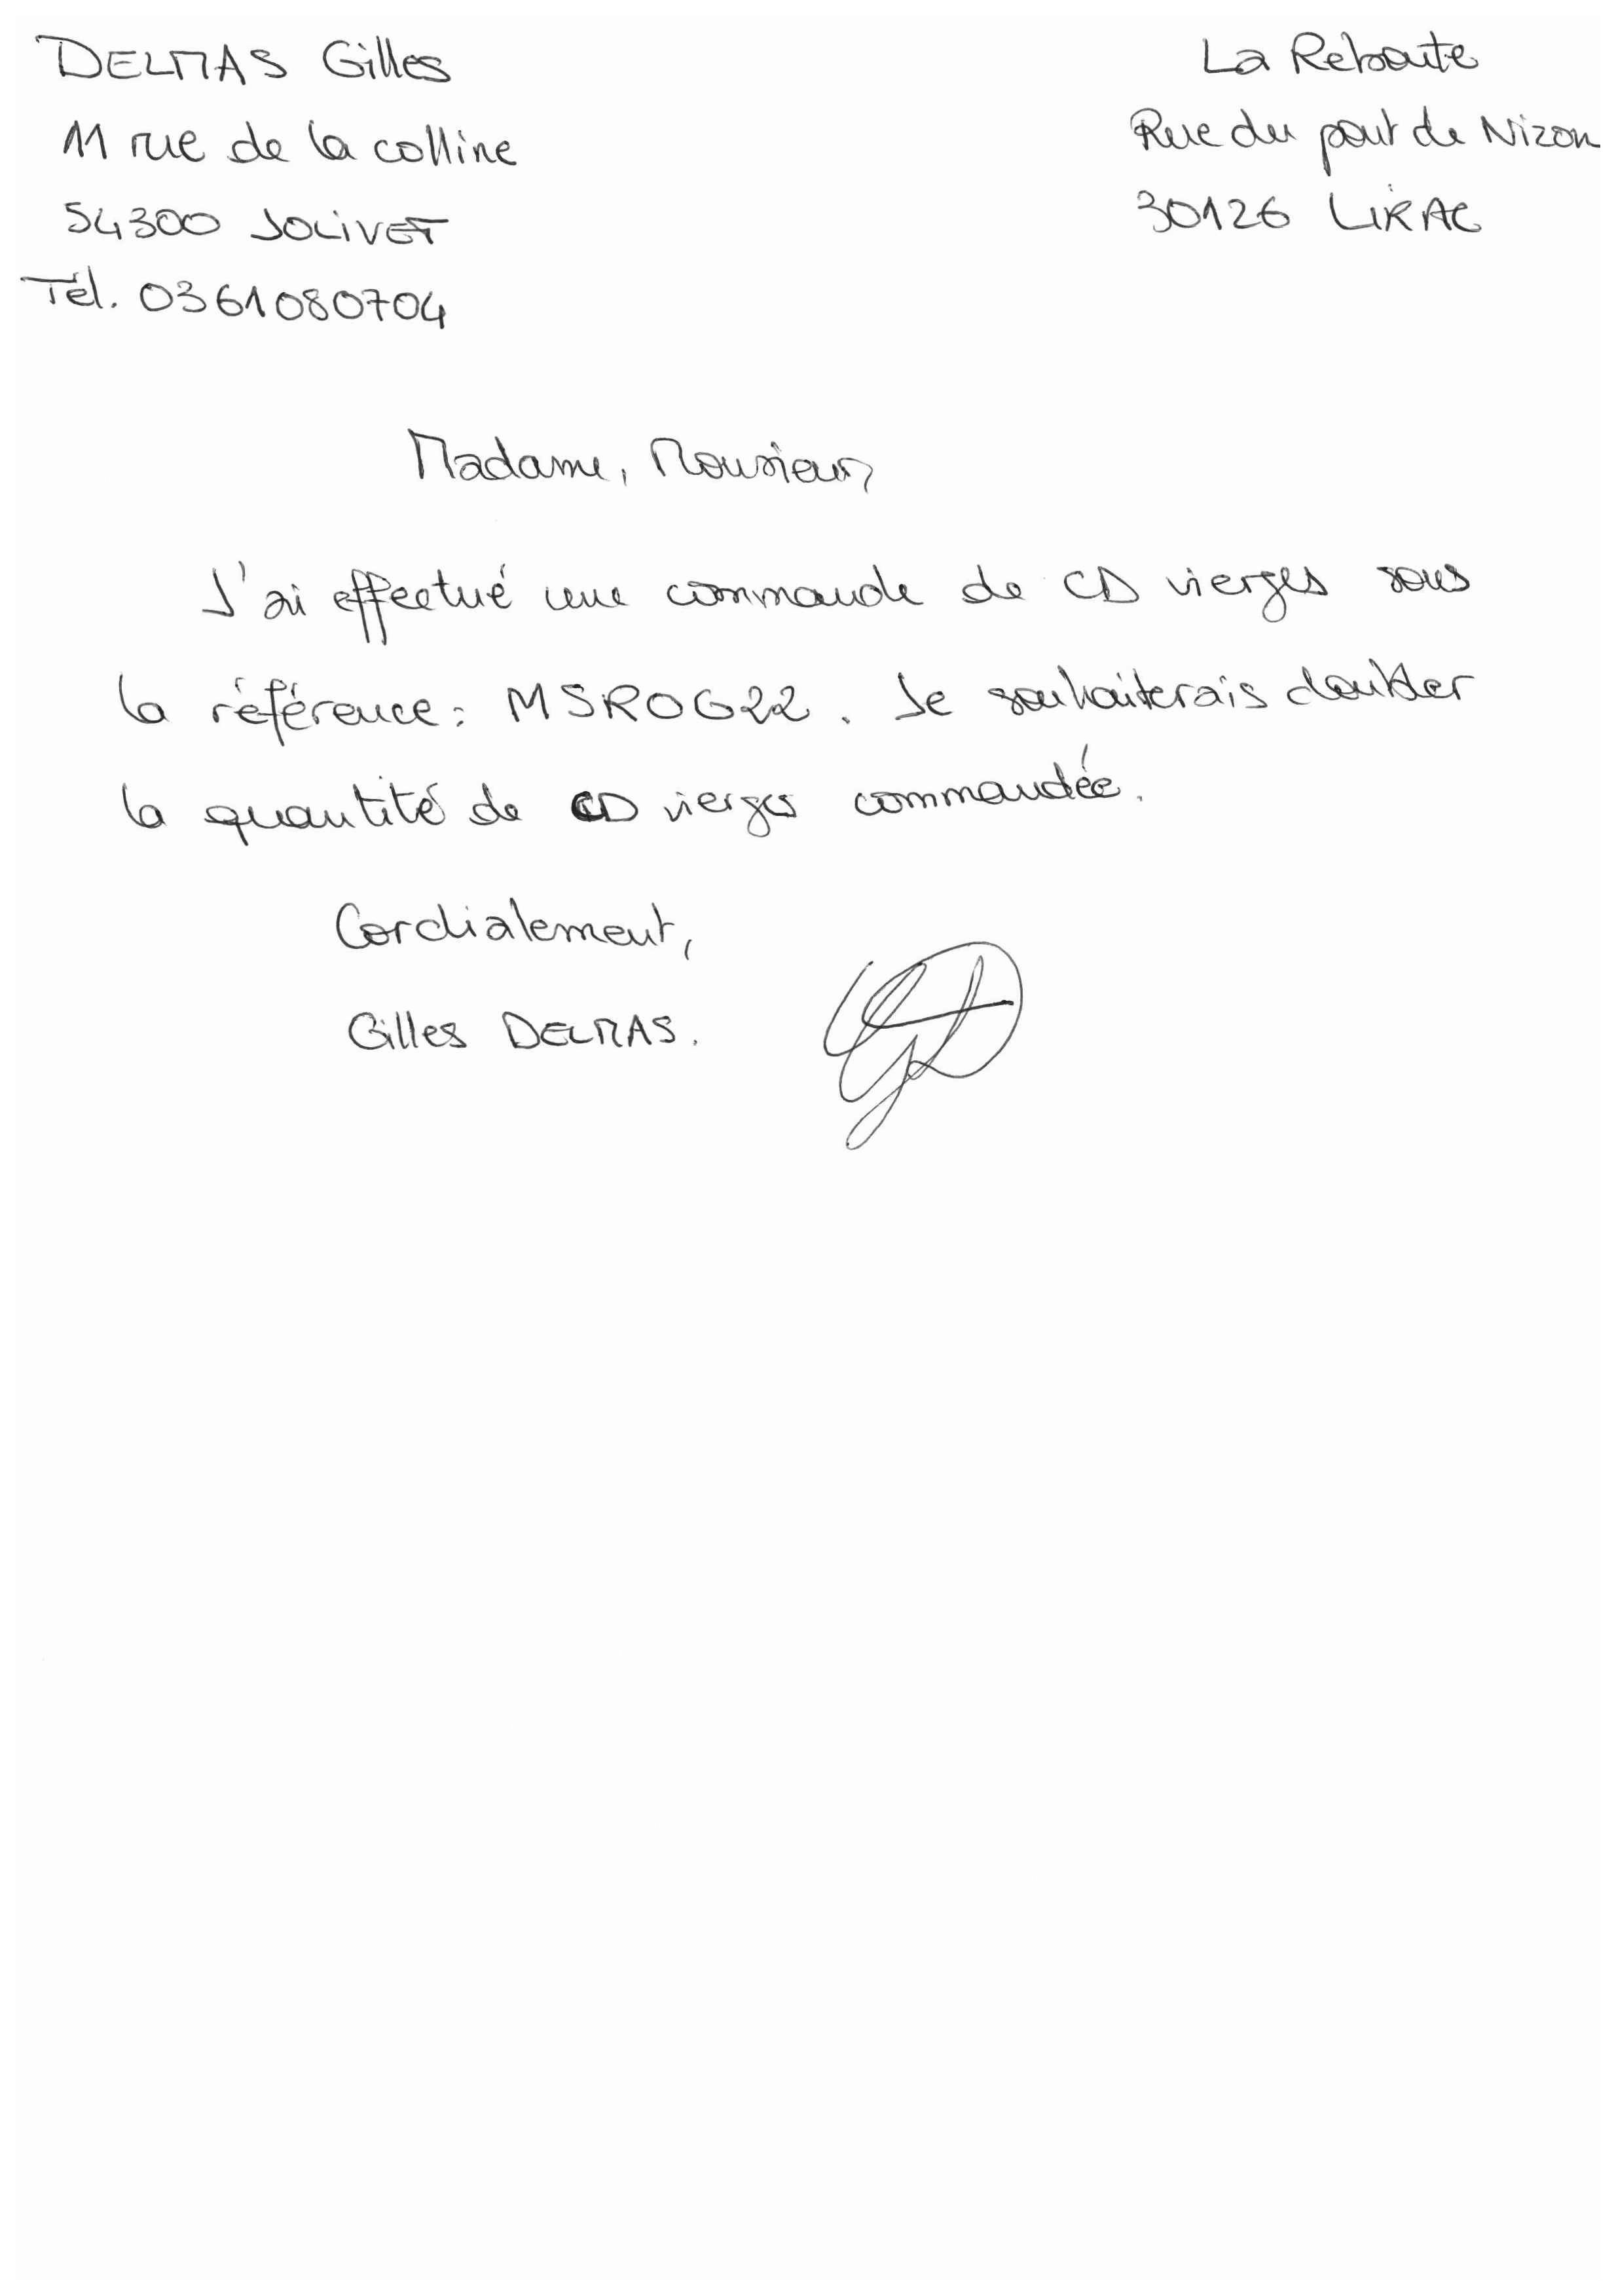 DELMAS Gilles
11 rue de la colline
54300 JOLIVET
Tél. 0361080704
La Reboute
Rue du pont de Nizon
30126 LIRAC
Madame, Monsieur,
J'ai effectué une commande de CD vierges sous
la référence : MSROG22. Je souhaiterais doubler
la quantité de CD vierges commandée.
Cordialement,
Gilles DELMAS.